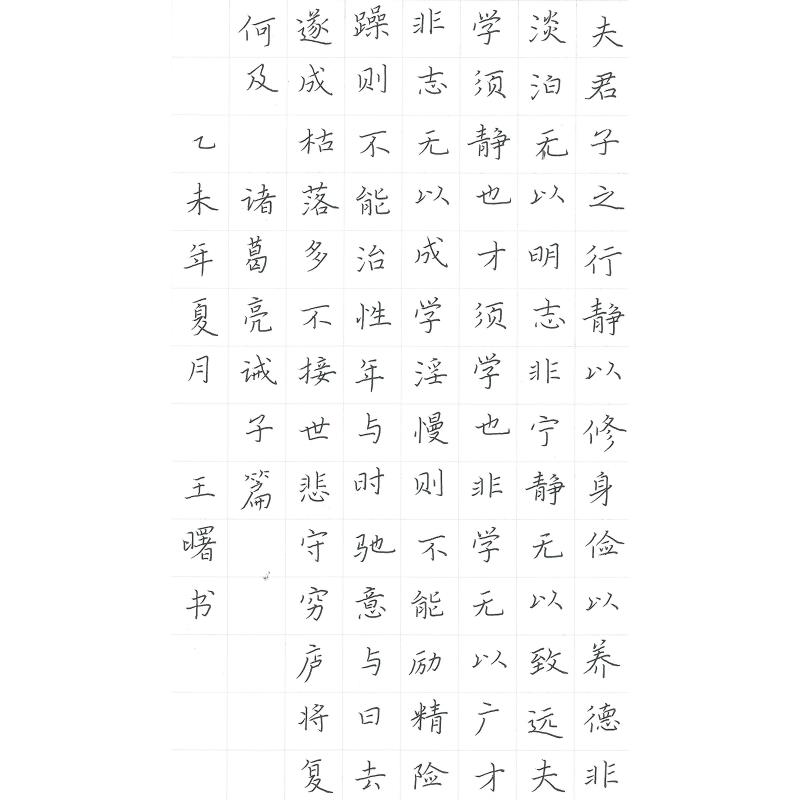 夫君子之行静以修身俭以养德非
淡泊无以明志非宁静无以致远夫
学须静也才须学也非学无以广才
非志无以成学淫慢则不能励精险
躁则不能治性年与时驰意与日去
遂成枯落多不接世悲守穷庐将复
何及 诸葛亮诫子篇
乙未年夏月 王曙书